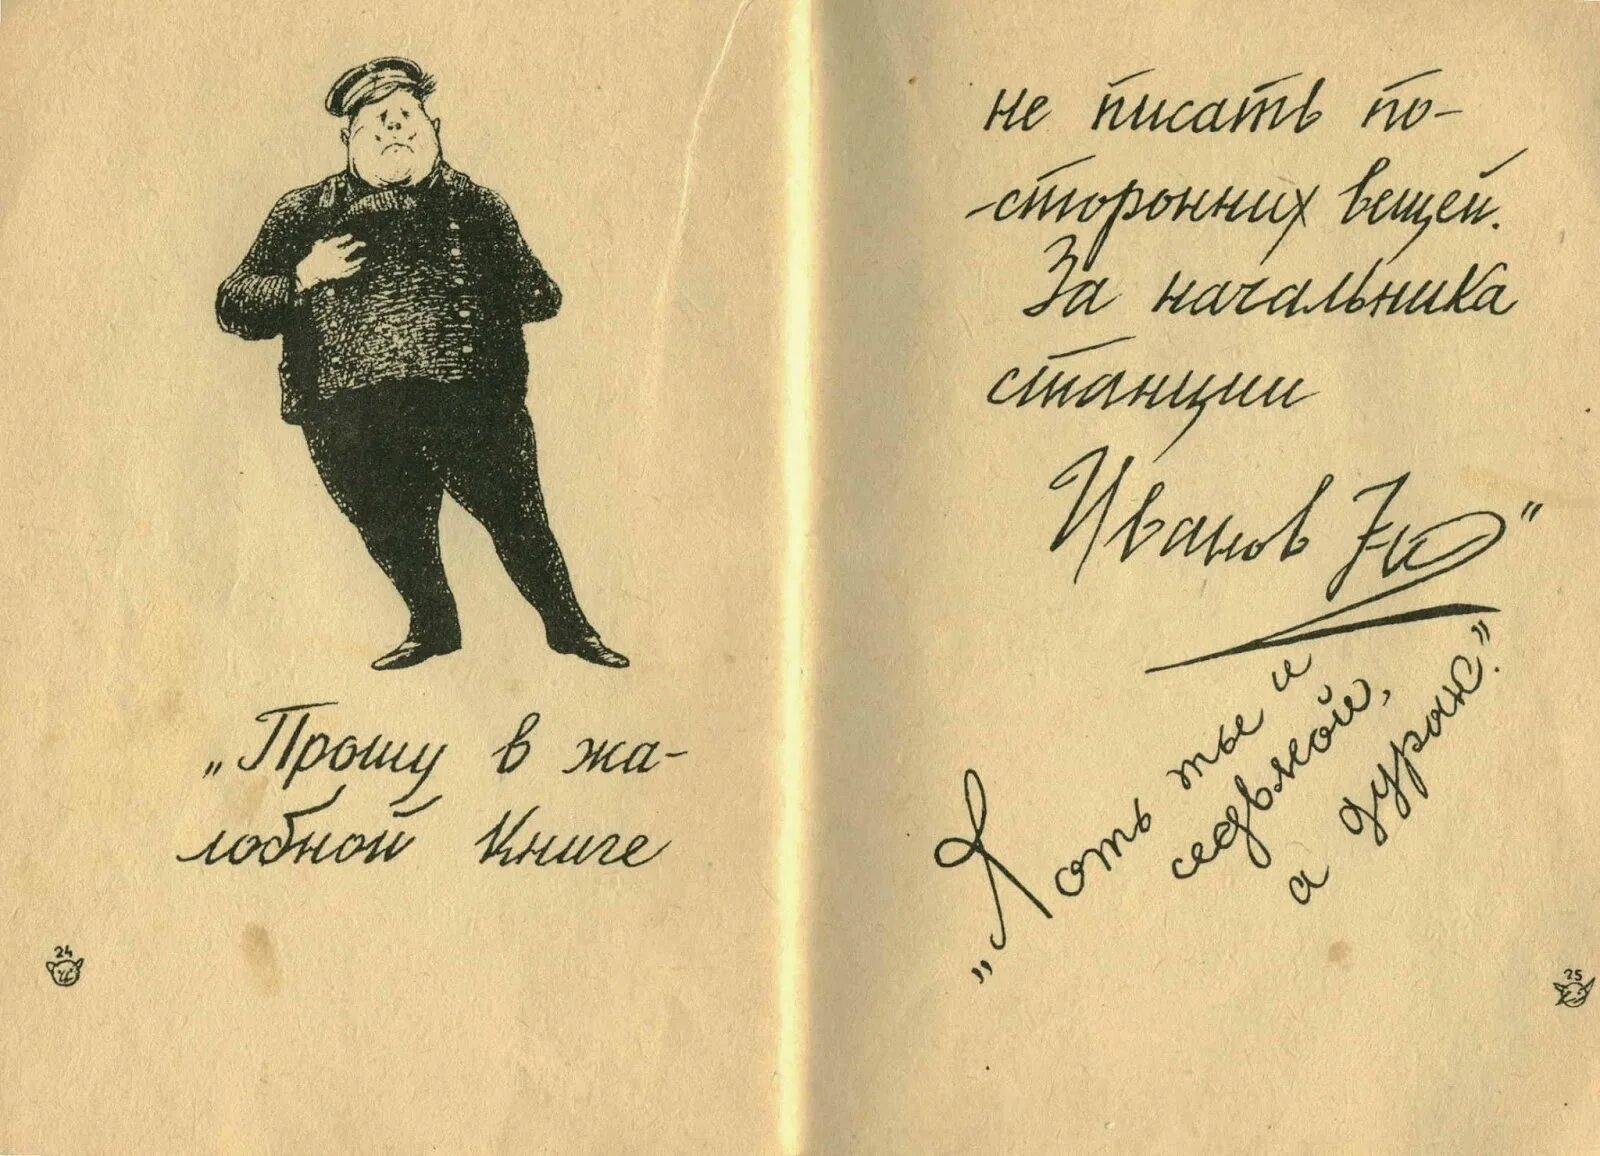 „Прошу в жа-
лобной книге
24
не писать по-
-сторонних вещей.
За начальника
станции
Иванов 7-й"
„Хоть ты и
седьмой,
а дурак."
25